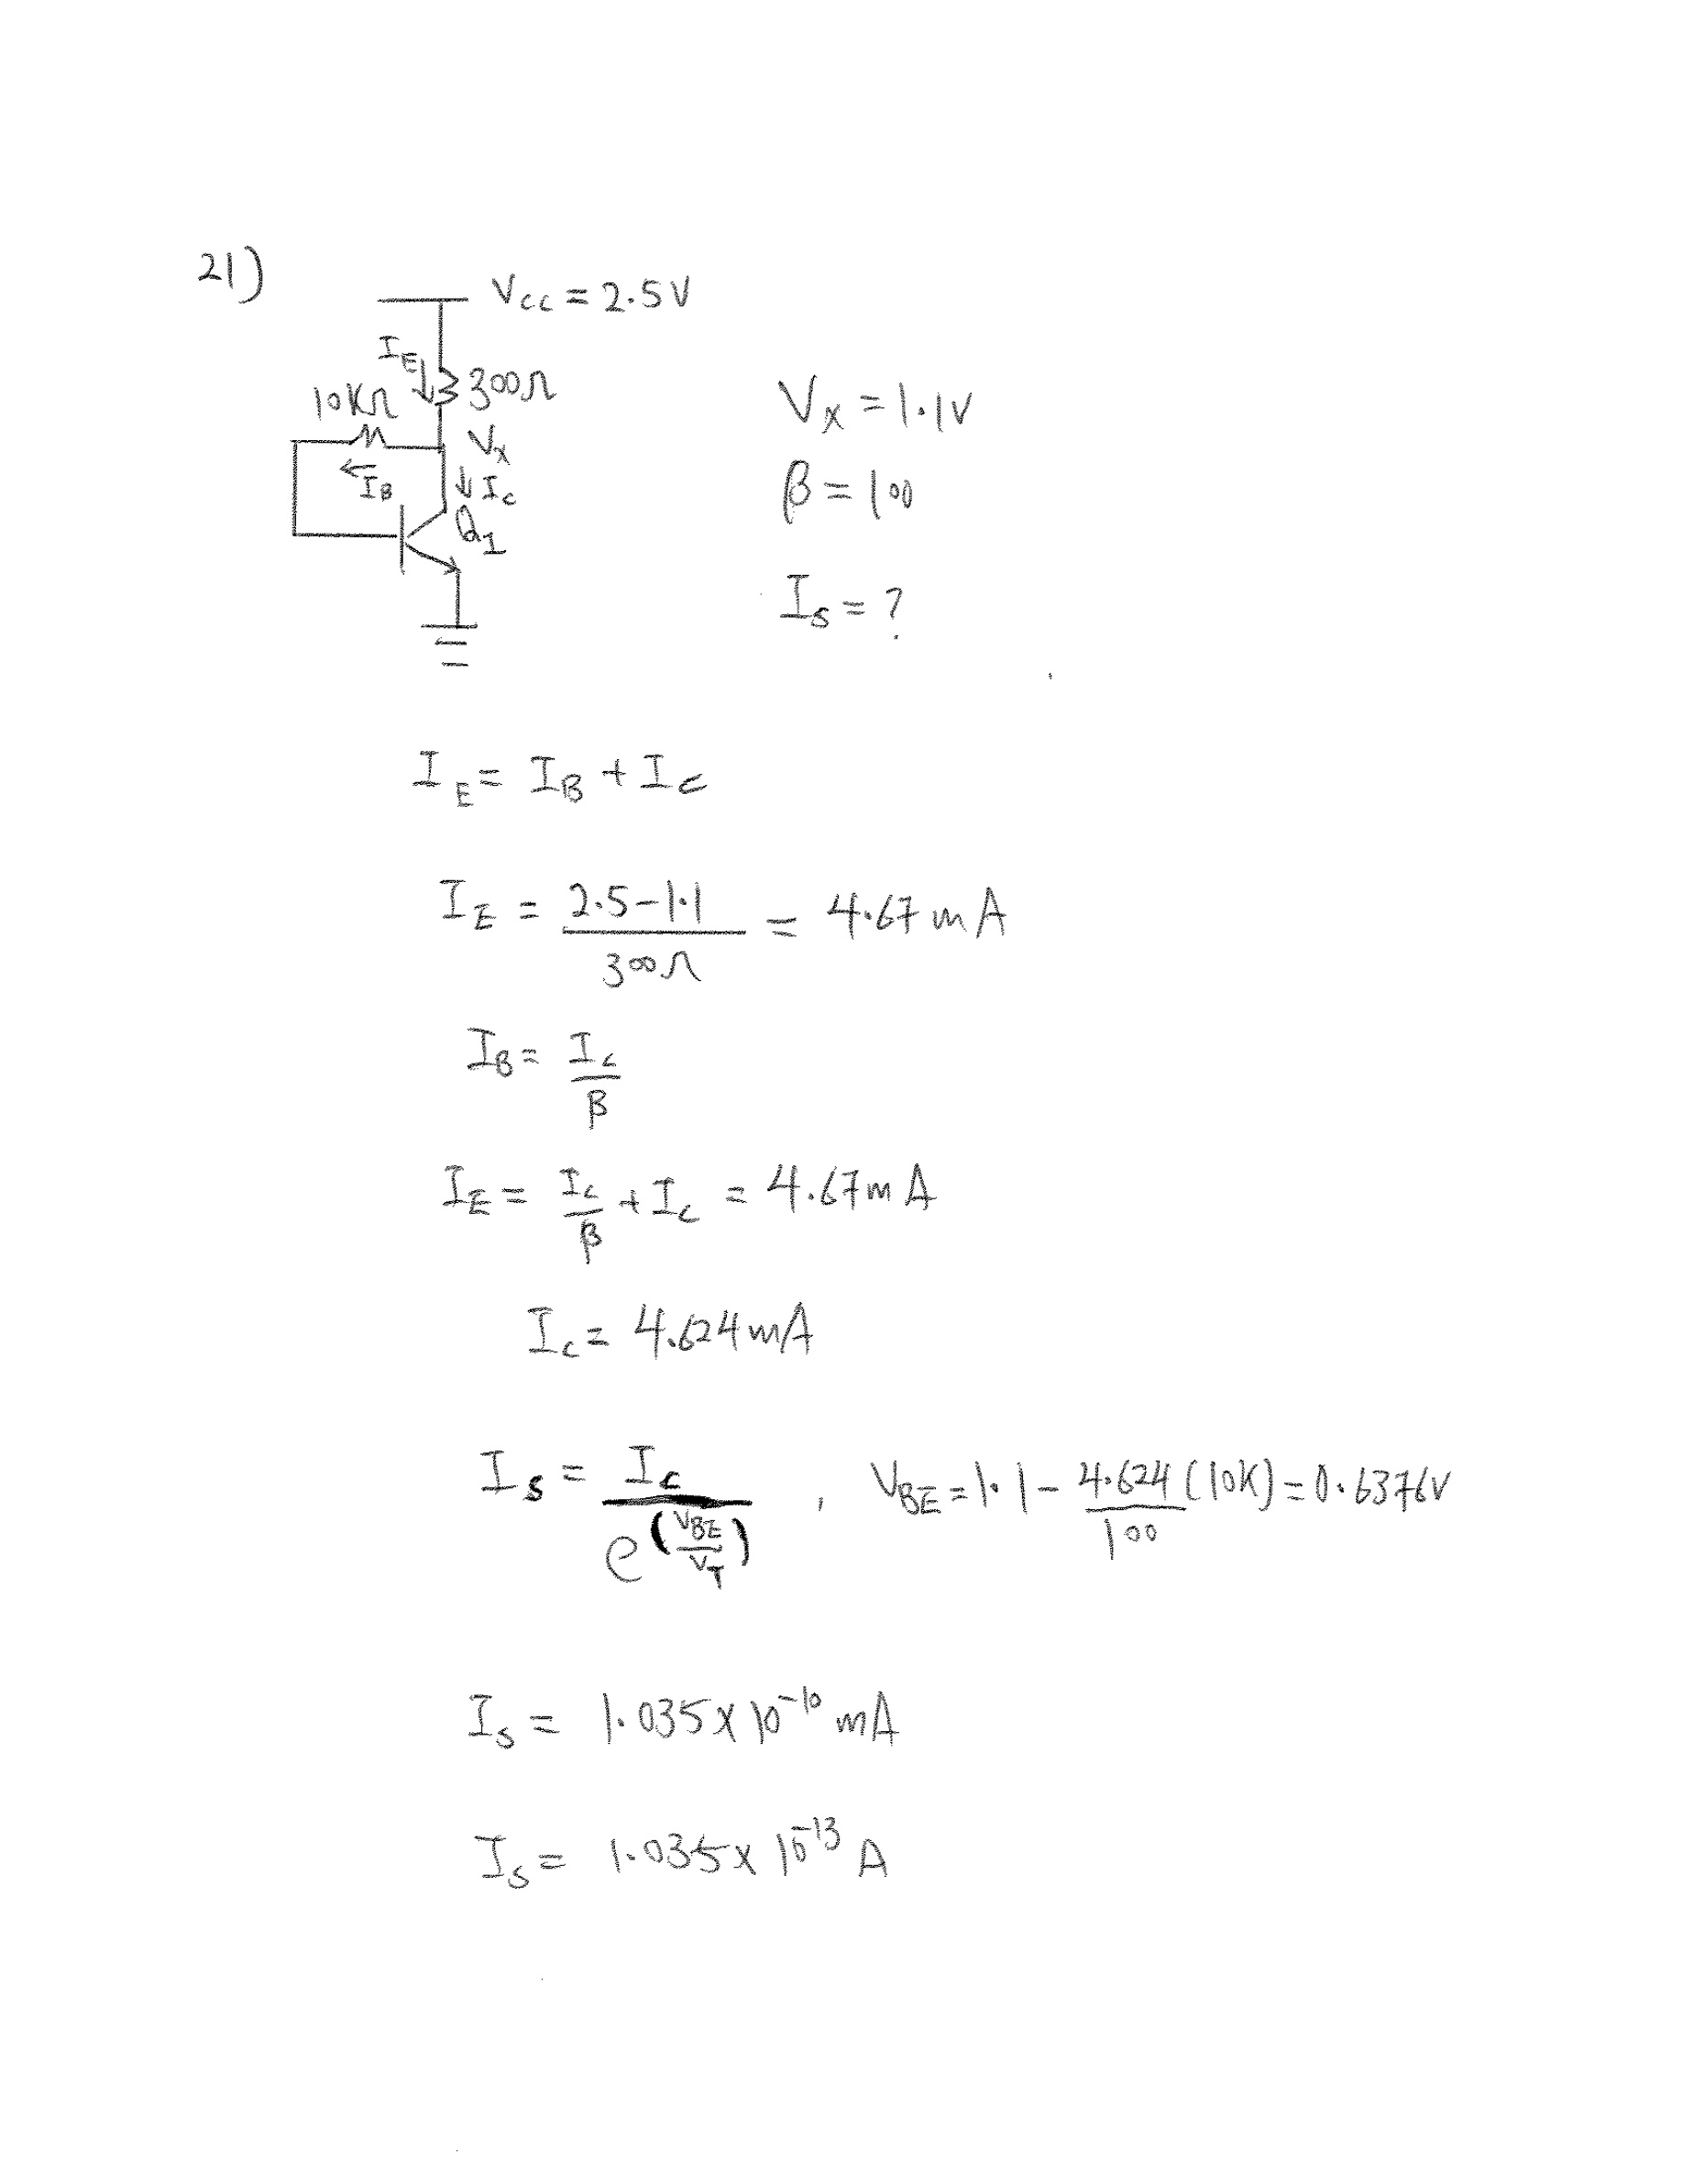 21)
V_CC = 2.5V
I_E
300Ω
10KΩ
V_X
I_B
I_C
Q_1
V_X = 1.1V
β = 100
I_S = ?
I_E = I_B + I_C
I_E = (2.5-1.1)/(300Ω) = 4.67 mA
I_B = I_C/β
I_E = I_C/β + I_C = 4.67mA
I_C = 4.624mA
I_S = I_C/e^(V_BE/V_T) , V_BE = 1.1 - 4.624/100 (10K) = 0.6376V
I_S = 1.035 x 10^-10 mA
I_S = 1.035 x 10^-13 A